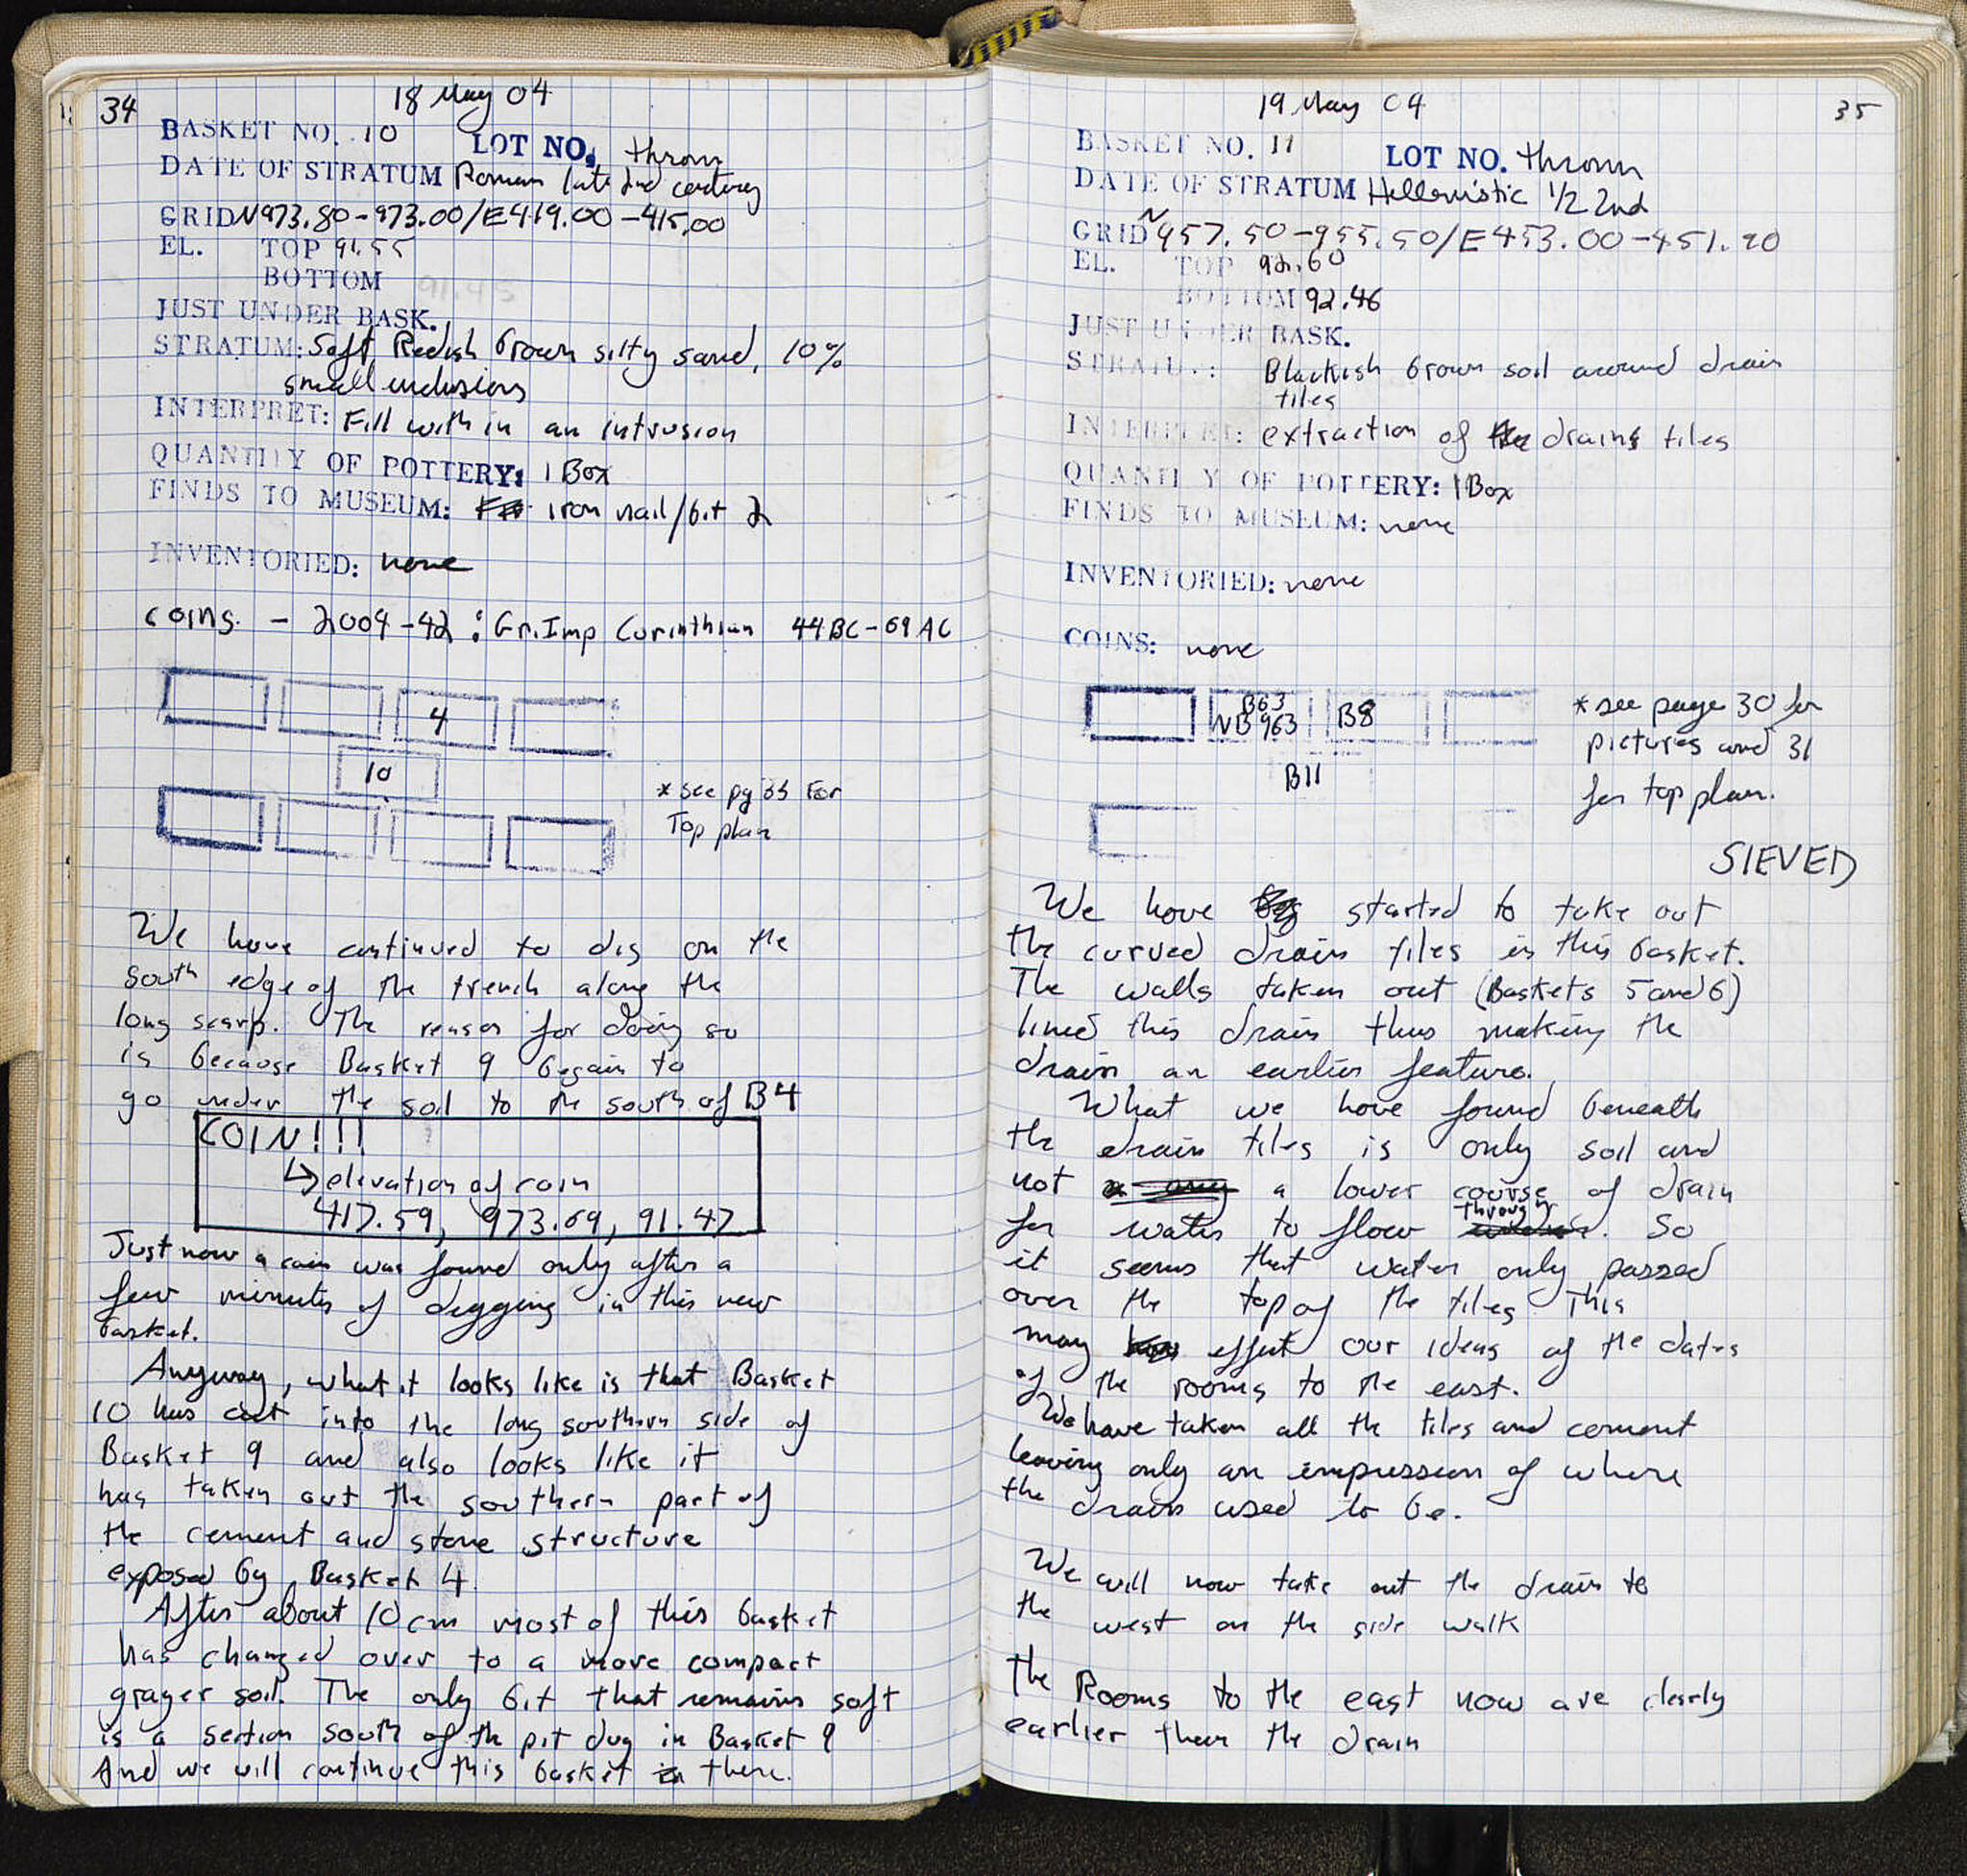 34
18 May 04
BASKET NO. 10 LOT NO. thrown
DATE OF STRATUM Roman late 2nd century
GRID N973.80-973.00/E419.00-415.00
EL. TOP 91.55
BOTTOM 91.45
JUST UNDER BASK.
STRATUM: Soft, Redish brown silty sand, 10%
small inclusions
INTERPRET: Fill with in an intrusion
QUANTITY OF POTTERY: 1 Box
FINDS TO MUSEUM: iron nail/bit 2
INVENTORIED: none
coins. - 2004-42: Gr. Imp Corinthian 44BC-69AC
4
10
* see pg 33 For
Top plan
We have continued to dig on the
south edge of the trench along the
long scarp. The reason for doing so
is because Basket 9 began to
go under the soil to the south of B4
COIN!!!
↳ elevation of coin
417.59, 973.69, 91.47
Just now a coin was found only after a
few minutes of digging in this new
basket.
Anyway, what it looks like is that Basket
10 has cut into the long southern side of
Basket 9 and also looks like it
has taken out the southern part of
the cement and stone structure
exposed by Basket 4.
After about 10cm most of this basket
has changed over to a more compact
grayer soil. The only bit that remains soft
is a section south of the pit dug in Basket 9
And we will continue this basket in there.
35
19 May 04
BASKET NO. 11 LOT NO. thrown
DATE OF STRATUM Hellenistic 1/2 2nd
GRID N957.50-955.50/E453.00-451.20
EL. TOP 92.60
BOTTOM 92.46
JUST UNDER BASK.
STRATUM: Blackish brown soil around drain
tiles
INTERPRET: extraction of drain tiles
QUANTITY OF POTTERY: 1 Box
FINDS TO MUSEUM: none
INVENTORIED: none
COINS: none
B63
NB 963 B8
B11
* see page 30 for
pictures and 31
for top plan.
SIEVED
We have started to take out
the curved drain tiles in this basket.
The walls taken out (Baskets 5 and 6)
lined this drain thus making the
drain an earlier feature.
What we have found beneath
the drain tiles is only soil and
not a lower course of drain
for water to flow through. So
it seems that water only passed
over the top of the tiles. This
may effect our ideas of the dates
of the rooms to the east.
We have taken all the tiles and cement
leaving only an impression of where
the drain used to be.
We will now take out the drain to
the west on the side walk
The Rooms to the east now are clearly
earlier then the drain